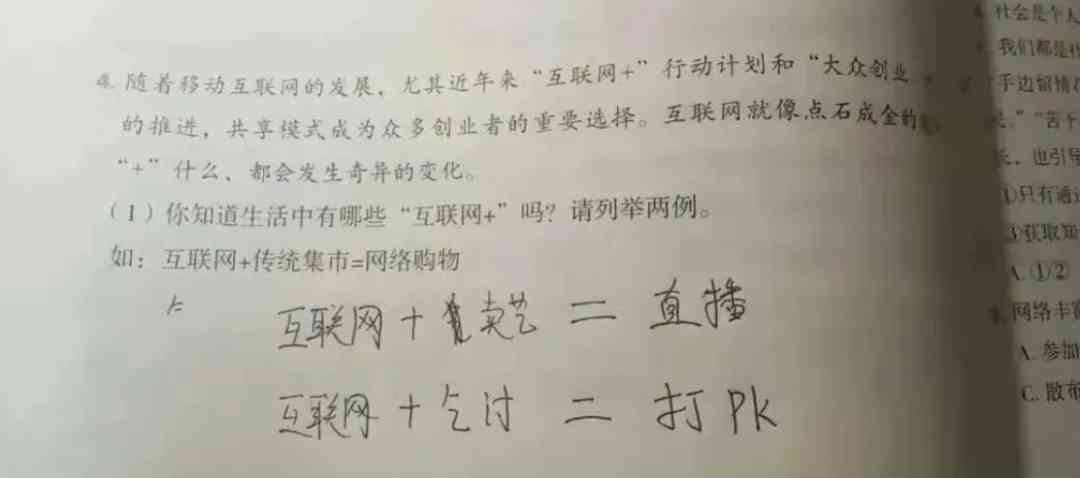 4. 随着移动互联网的发展，尤其近年来“互联网+”行动计划和“大众创业
的推进，共享模式成为众多创业者的重要选择。互联网就像点石成金的
“+”什么、都会发生奇异的变化。
（1）你知道生活中有哪些“互联网+”吗？请列举两例。
如：互联网+传统集市=网络购物
互联网＋卖艺＝直播
互联网＋乞讨＝打PK
社会是个人
我们都是社
手边留情
“苦于
长，也引导
①只有通过
③获取知
A.①②
网络丰富
A.参加
C.散布